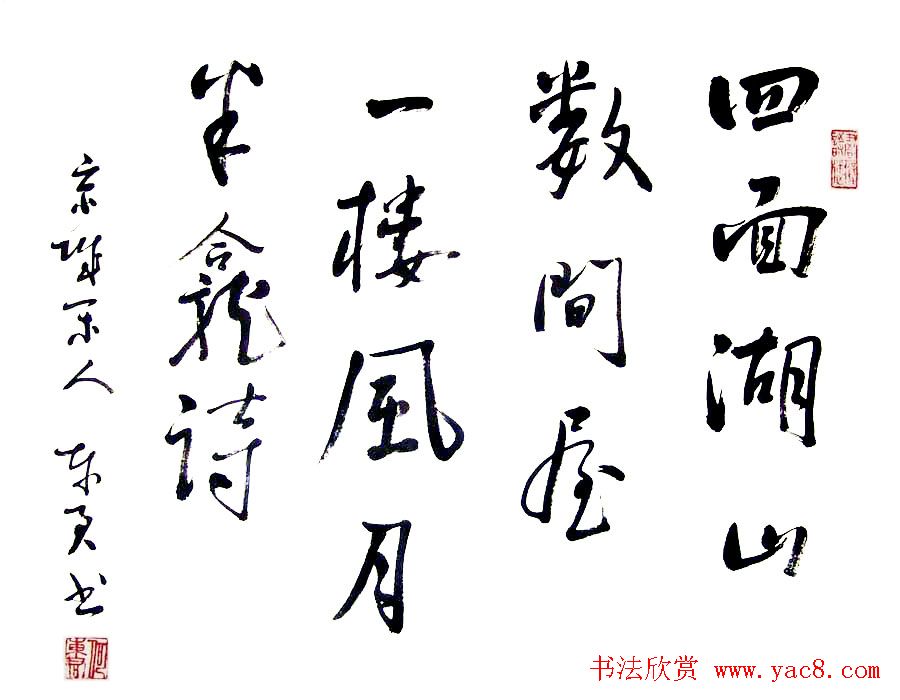 四面湖山
数間屋
一楼風月
半龕詩
京城人 书
书法欣赏 www.yac8.com